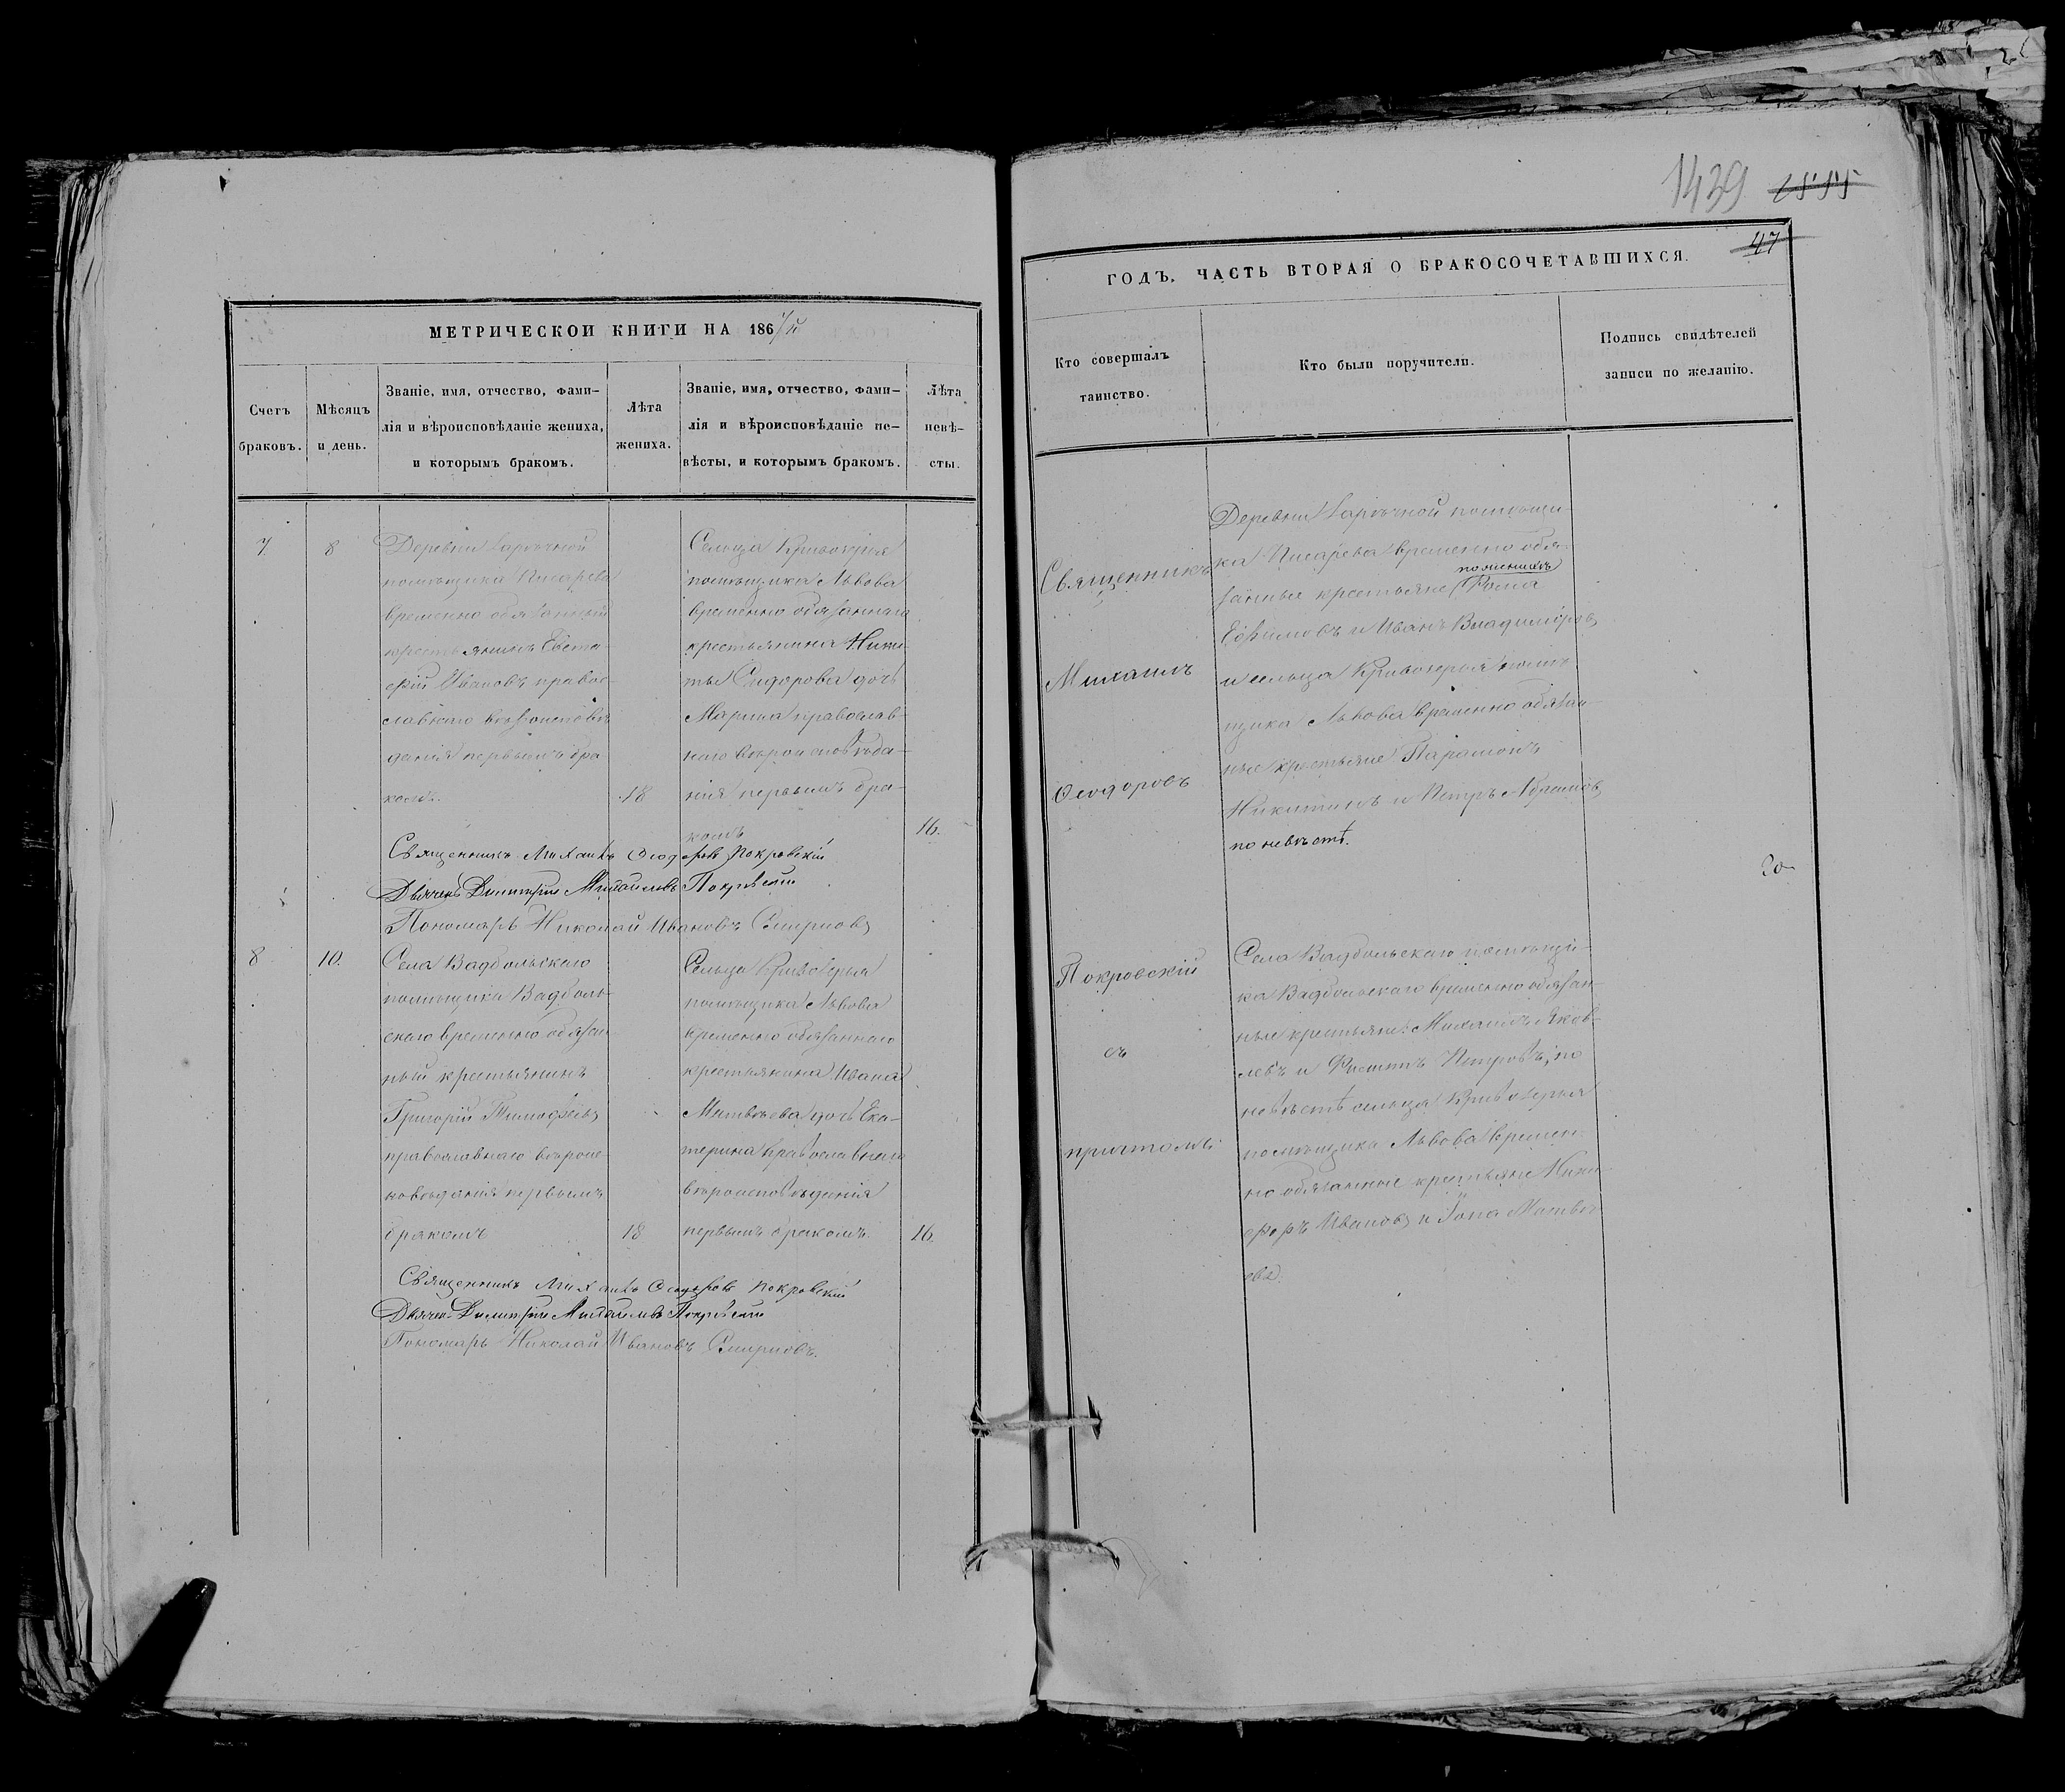 МЕТРИЧЕСКОЙ КНИГИ НА 1867й
Счетъ
браковъ.
Мѣсяцъ
и день.
Званіе, имя, отчество, фами-
лія и вѣроисповѣданіе жениха,
и которымъ бракомъ.
Лѣта
жениха.
Званіе, имя, отчество, фами-
лія и вѣроисповѣданіе не-
вѣсты, и которымъ бракомъ.
Лѣта
невѣ-
сты.
7
8
Деревни Заречной
помѣщика Писарева
временно обязанный
крестьянинъ Евста-
фій Ивановъ правос-
лавнаго вѣроисповѣ-
данія первымъ бра-
комъ.
18
Сельца Кривозерья
помѣщика Львова
временно обязаннаго
крестьянина Ники-
ты Сидорова дочь
Марина православ-
наго вѣроисповѣда-
нія первымъ бра-
комъ
16.
Священникъ Михаилъ Ѳеодоровъ Покровскій
Дьячекъ Димитрій Михайловъ Покровскій
Пономарь Николай Ивановъ Смирновъ
8
10.
Села Вадбольскаго
помѣщика Вадболь-
скаго временно обязан-
ный крестьянинъ
Григорій Тимофеевъ
православнаго вѣроис-
повѣданія первымъ
бракомъ
18
Сельца Кривозерья
помѣщика Львова
временно обязаннаго
крестьянина Ивана
Матвѣева дочь Ека-
терина православнаго
вѣроисповѣданія
первымъ бракомъ.
16.
Священникъ Михаилъ Ѳеодоровъ Покровскій
Дьячекъ Димитрій Михайловъ Покровскій
Пономарь Николай Ивановъ Смирновъ.
1439 2555
47
ГОДЪ, ЧАСТЬ ВТОРАЯ О БРАКОСОЧЕТАВШИХСЯ.
Кто совершалъ
таинство.
Кто были поручители.
Подпись свидѣтелей
записи по желанію.
Священникъ
Михаилъ
Ѳеодоровъ
Покровскій
съ
причтомъ:
Деревни Заречной помѣщи-
ка Писарева временно обя-
занные крестьяне по женихѣ Фома
Ефимовъ и Иванъ Владиміровъ
и сельца Кривозерья помѣ-
щика Львова временно обязан-
ные крестьяне Парамонъ
Никитинъ и Петръ Абрамовъ
по невѣстѣ.
Села Вадбольскаго помѣщи-
ка Вадбольскаго временно обязан-
ные крестьяне: Михаилъ Яков-
левъ и Филиппъ Петровъ; по
невѣстѣ сельца Кривозерья
помѣщика Львова времен-
но обязанные крестьяне Ники-
форъ Ивановъ и Іона Матвѣ-
евъ.